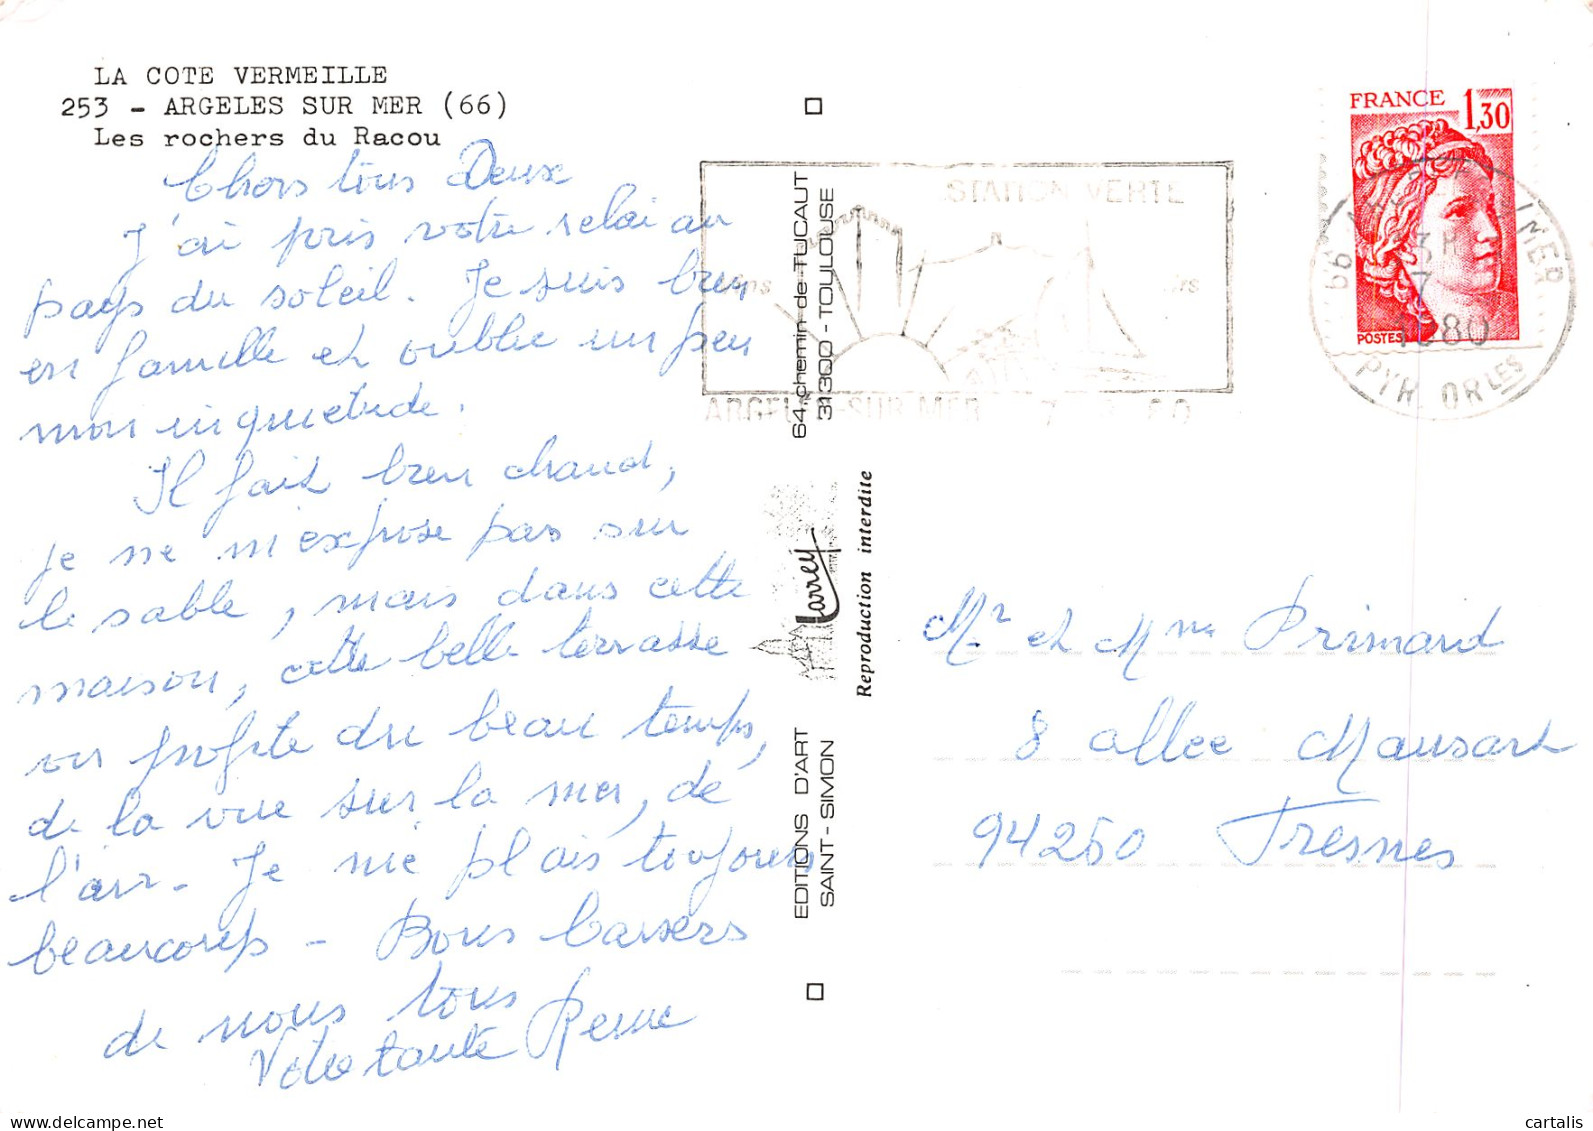 LA COTE VERMEILLE
253 - ARGELES SUR MER (66)
Les rochers du Racou
Chers tous Deux
J'ai pris votre relai au
pays du soleil. Je suis bien
en famille et oublie un peu
mon inquietude.
Il fait bien chaud,
je ne m'expose pas sur
le sable, mais dans cette
maison, cette belle terrasse
on profite du beau temps,
de la vue sur la mer, de
l'air - Je me plais toujours
beaucoup - Bons baisers
de nous tous
Votre tante
64, chemin de TUCAUT
31300 - TOULOUSE
Larrey
Reproduction interdite
EDITIONS D'ART
SAINT-SIMON
STATION VERTE
ARGELES-SUR MER
FRANCE
1,30
POSTES
66
MER
1980
PYR ORLES
Mr et Mme Primard
8 allee Mansart
94260 Fresnes
delcampe.net
cartesalis